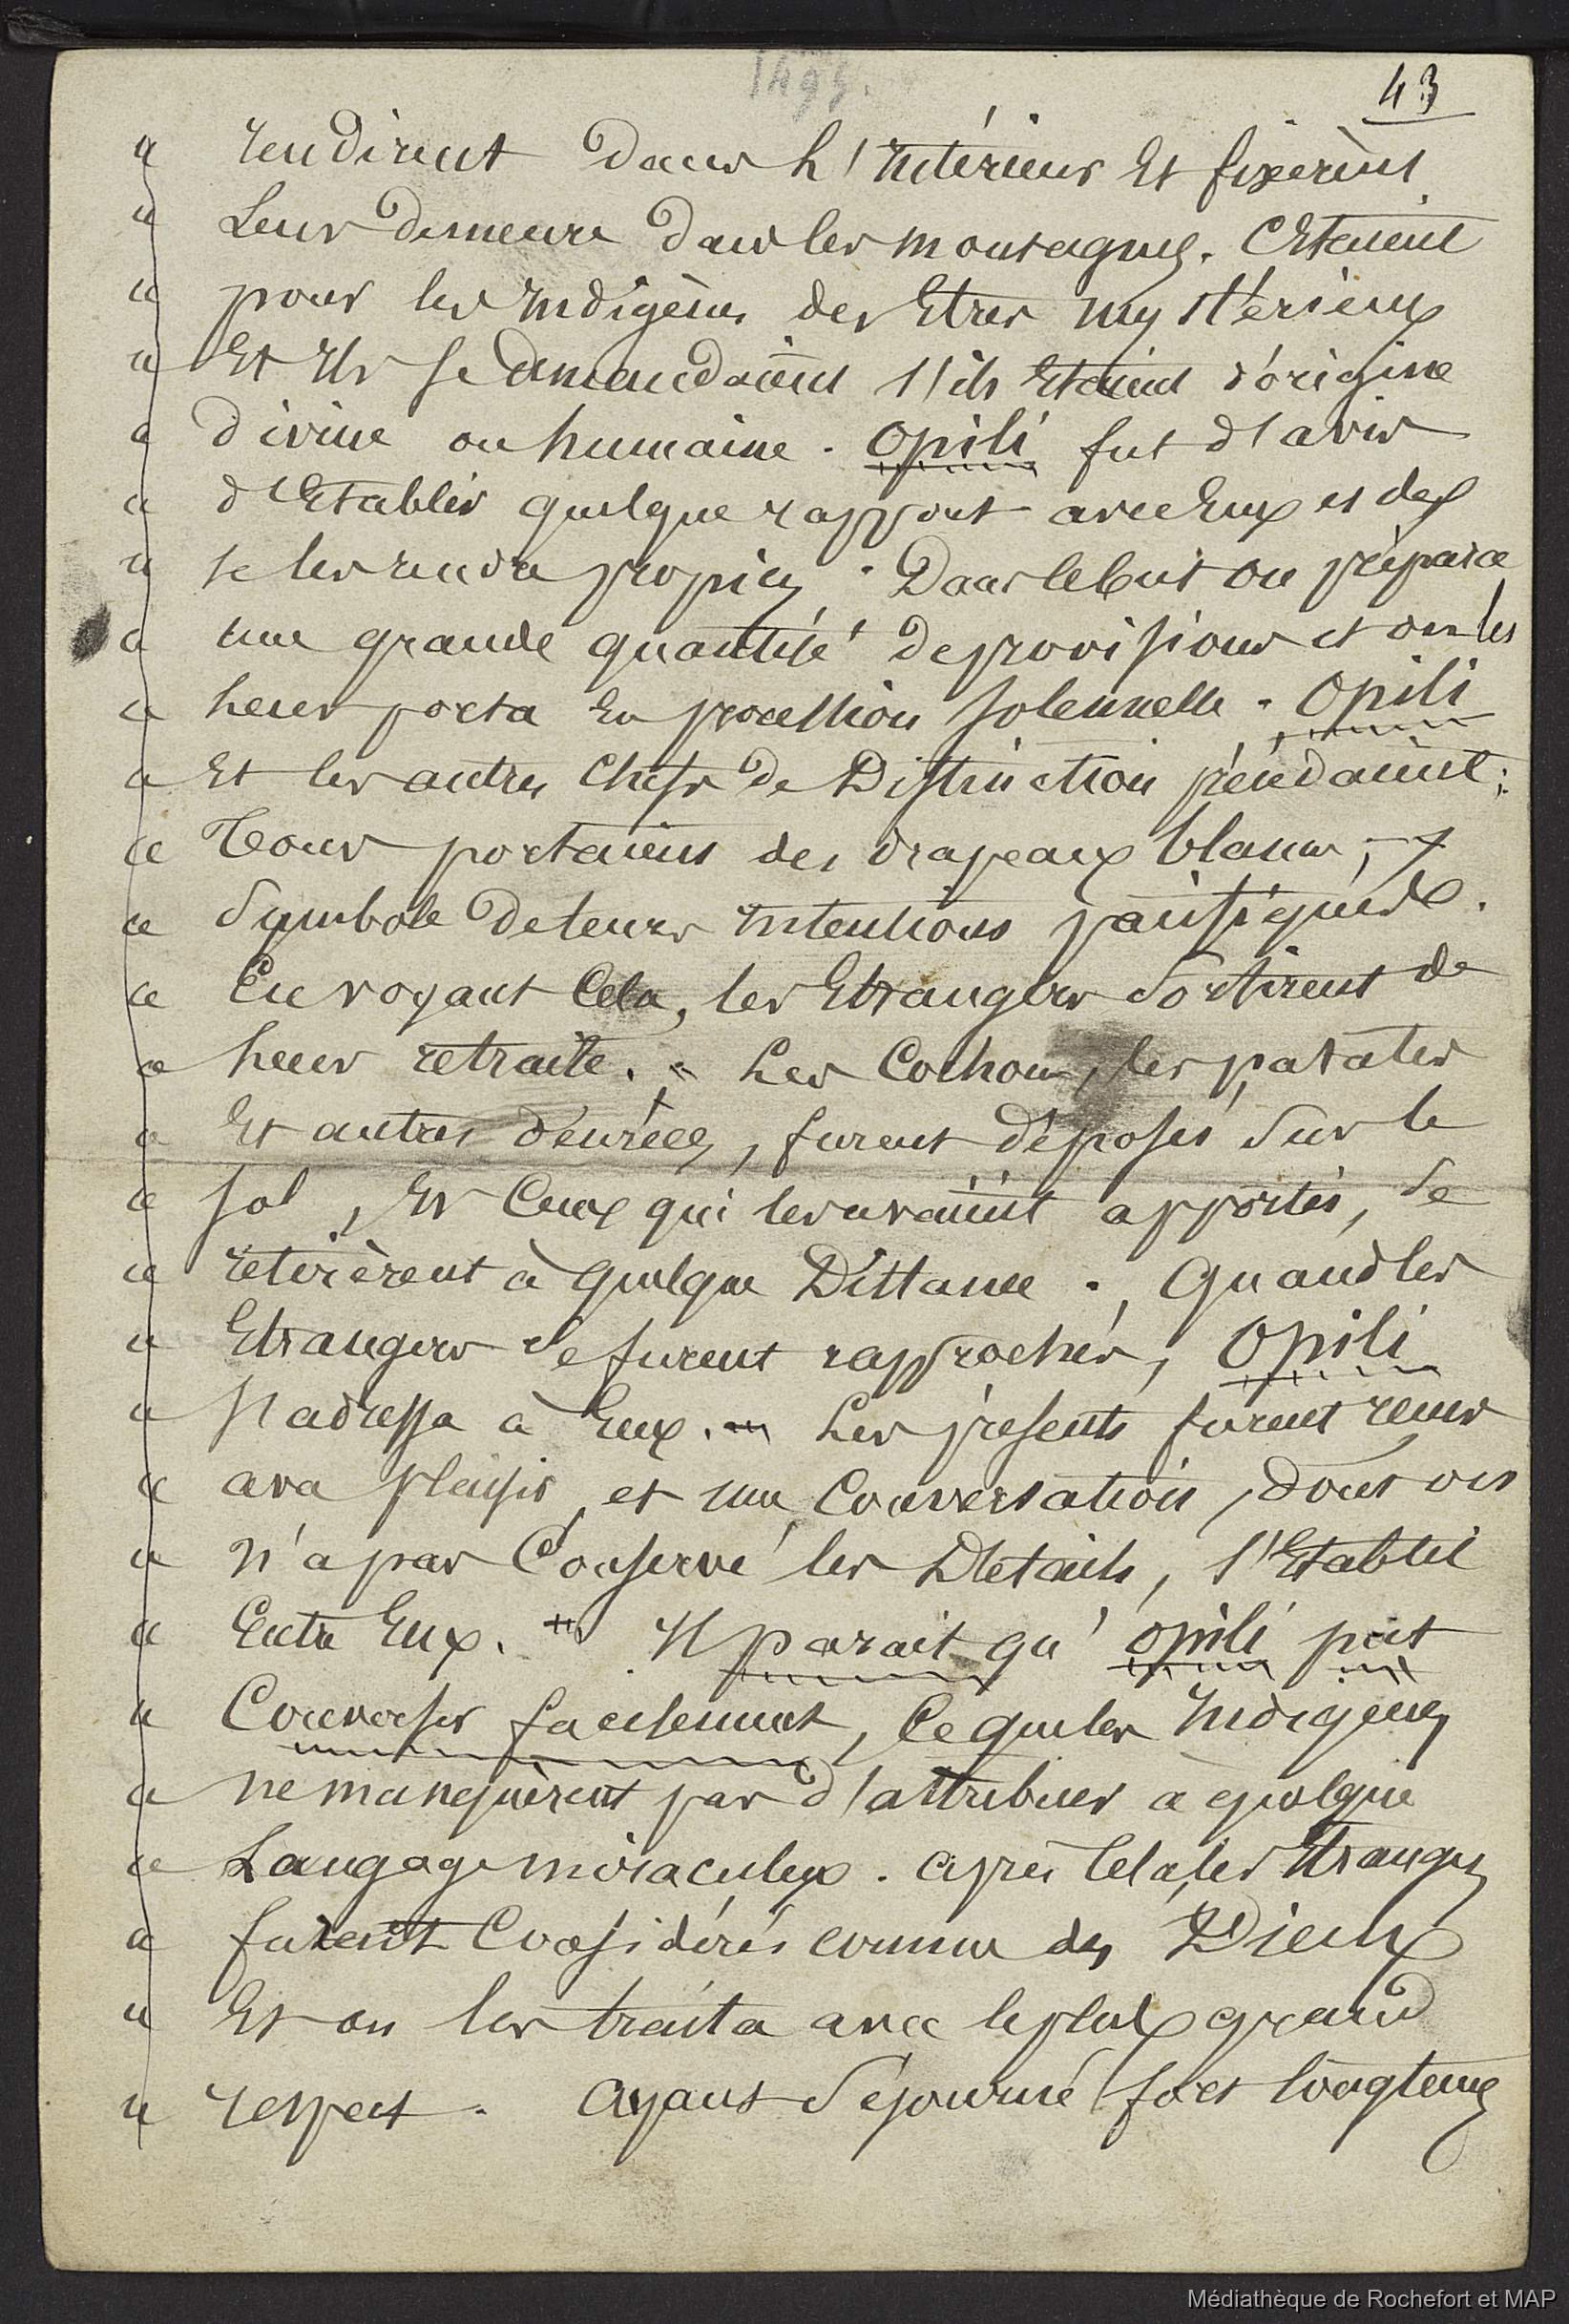 43
« rendirent dans L'Intérieur Et fixèrent
« Leur Demeure dans les montagnes. C'Etaient
« pour les Indigènes des Etres mystérieux
« Et Ils se demandaient s'ils Etaient d'origine
« divine ou humaine. Opili fut d'avis
« d'Etablir quelque rapport avec Eux et de
« se les rendre propices. Dans le but on prépara
« une grande quantité de provisions et on les
« Leur porta En procession solennelle. Opili
« Et les autres Chefs de Distinction
« Tous portaient des drapeaux blancs,
« Symbole de leurs Intentions pacifiques.
« En voyant Cela, les Etrangers Sortirent de
« Leur retraite. Les Cochons, les patates
« Et autres denrées, furent déposés Sur le
« sol, Et Ceux qui les avaient apportés, Se
« retirèrent à quelque Distance. Quand les
« Etrangers se furent rapprochés, Opili
« s'adressa à Eux. Les présents furent reçus
« avec plaisir, et une Conversation, dont on
« n'a pas Conservé les Détails, s'Etablit
« Entre Eux. Il parait qu'Opili put
« Converser facilement, Ce que les Indigènes
« ne manquèrent pas d'attribuer à quelque
« Langage miraculeux. après Cela, les Etrangers
« furent Considérés comme des Dieux
« Et on les traita avec le plus grand
« respect. Ayant Séjourné fort longtemps
Médiathèque de Rochefort et MAP